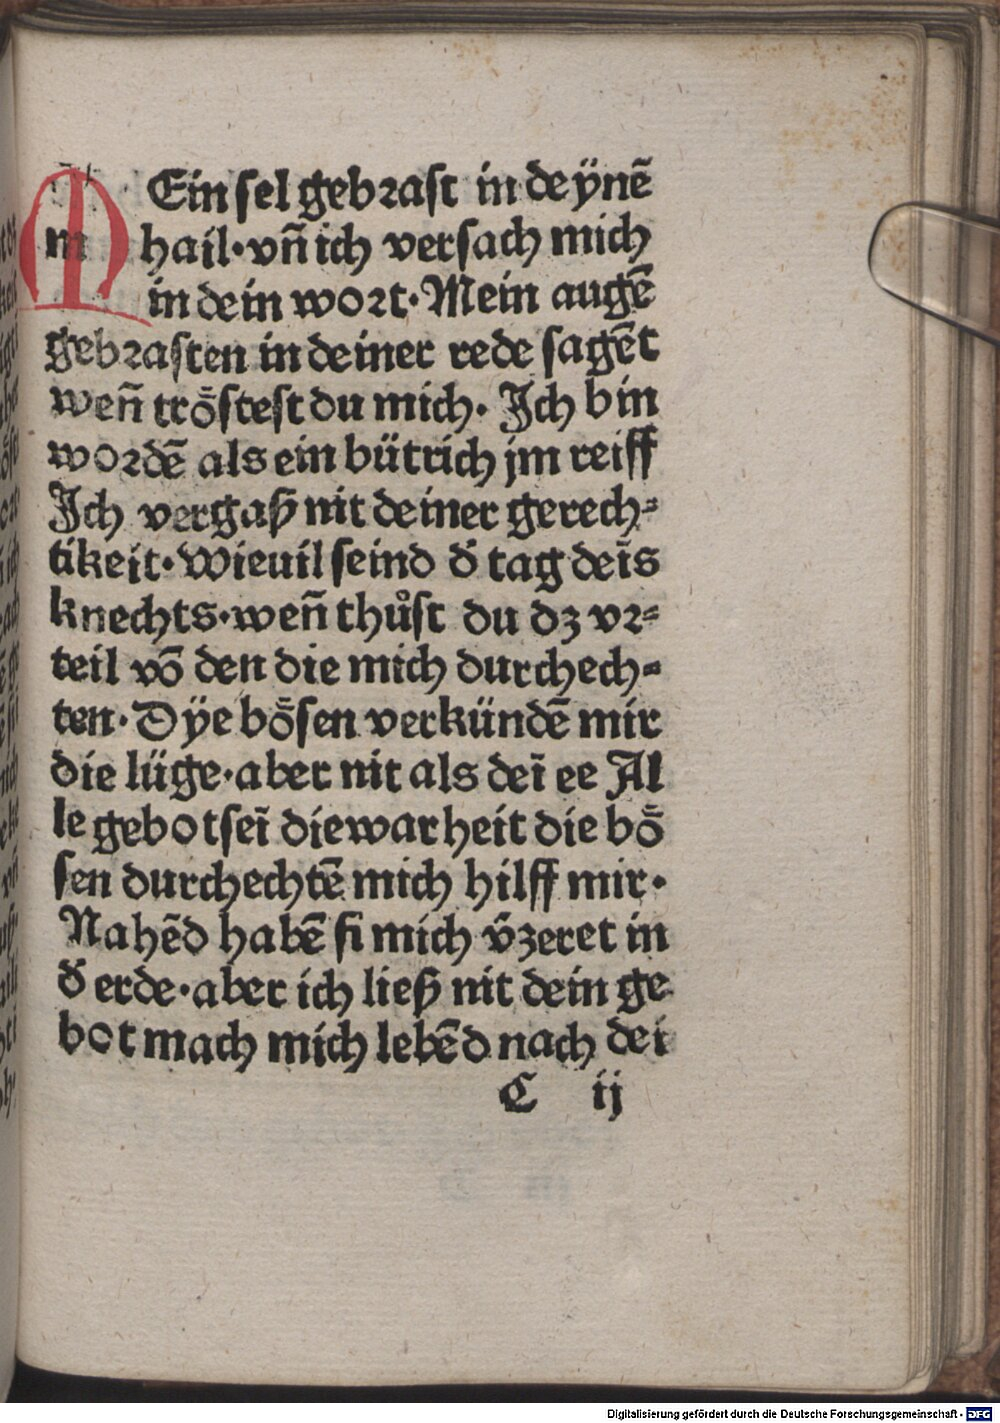 MEin sel gebrast in deynē
hail·vñ ich versach mich
in dein wort·Mein augē
gebrasten in deiner rede sagēt
weñ tröstest du mich· Ich bin
wordē als ein bütrich jm reiff
Ich vergaß nit deiner gerech⸗
tikeit·Wieuil seind d̄ tag deīs
knechts·weñ thůst du dz vr⸗
teil vō den die mich durchech⸗
ten·Dÿe bösen verkündē mir
die lüge·aber nit als deī ee Al
le gebot seī die warheit die bö
sen durchechtē mich hilff mir·
Nahēd habē si mich v̄zeret in
d̄ erde·aber ich ließ nit dein ge
bot mach mich lebēd nach dei
C ij
Digitalisierung gefördert durch die Deutsche Forschungsgemeinschaft - DFG